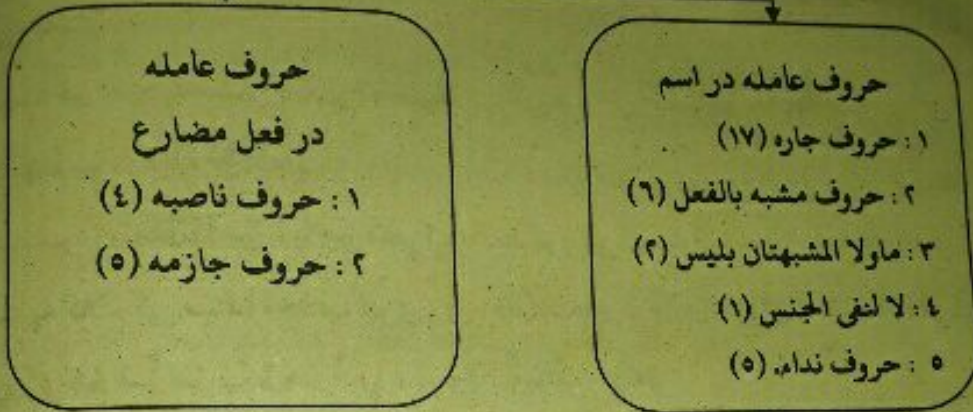 حروف عامله در اسم
١ : حروف جاره (١٧)
٢ : حروف مشبه بالفعل (٦)
٣ : ماولا المشبهتان بليس (٢)
٤ : لا لنفى الجنس (١)
٥ : حروف نداء. (٥)
حروف عامله
در فعل مضارع
١ : حروف ناصبه (٤)
٢ : حروف جازمه (٥)